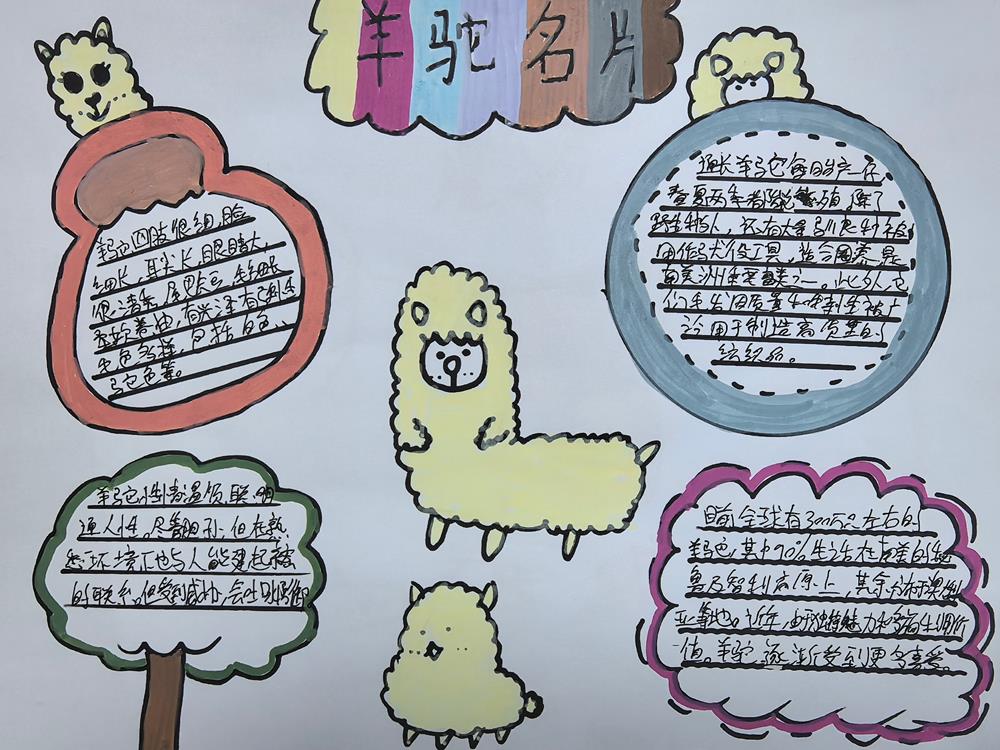 羊驼名片
羊驼四肢很细,脸
细长,耳尖长,眼睛大,
很清秀,尾巴短,毛细长
柔软卷曲,有光泽有弹性
毛色多样,包括白色、
驼色等。
成年羊驼每日产一仔
春夏两季都能繁殖,除了
野生种外,还有大量驯良种被
用作役工具,
南美洲重要畜类之一。此外它
们毛 质量 被广
泛用于制造高质量的
纺织品。
羊驼性情温顺,聪明
通人性。尽管胆小,但在熟
悉环境下也与人能建起亲密
的联系。但受到威胁,会吐口水御
目前全球有300万只左右的
羊驼,其中90%生活在南美的秘
鲁及智利高原上,其余分布于澳洲
亚等地。近年,由于独特魅力和多用利用价
值。羊驼逐渐受到更多喜爱。